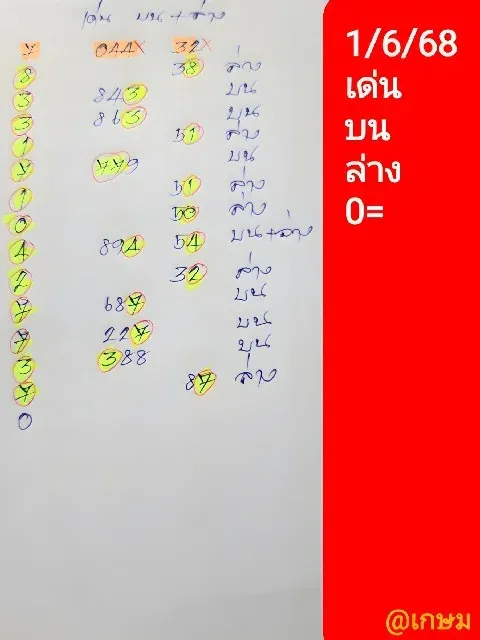 เด่น บน+ล่าง
7 044X 32X
8 38 ล่าง
3 843 บน
3 813 บน
1 51 ล่าง
7 779 บน
1 51 ล่าง
0 50 ล่าง
4 894 54 บน+ล่าง
2 32 ล่าง
7 687 บน
7 227 บน
3 388 บน
7 87 ล่าง
0
1/6/68
เด่น
บน
ล่าง
0=
@เกษม